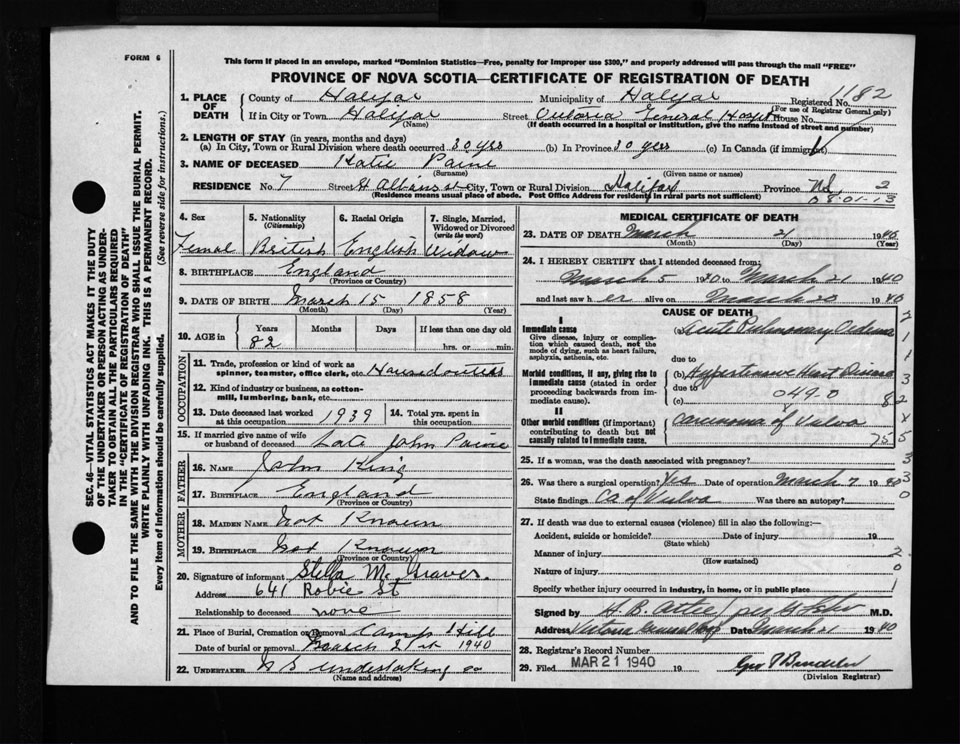 FORM 6
This form if placed in an envelope, marked "Dominion Statistics—Free, penalty for improper use $300," and properly addressed will pass through the mail "FREE"
PROVINCE OF NOVA SCOTIA—CERTIFICATE OF REGISTRATION OF DEATH
1182
1. PLACE OF DEATH
County of Halifax Municipality of Halifax Registered No.
(For use of Registrar General only)
If in City or Town Halifax Street Victoria General Hospt House No.
(Name) (If death occurred in a hospital or institution, give the name instead of street and number)
2. LENGTH OF STAY (in years, months and days)
(a) In City, Town or Rural Division where death occurred 30 yrs (b) In Province 30 yrs (c) In Canada (if immigrant)
3. NAME OF DECEASED Katie Paine
(Surname) (Given name or names)
RESIDENCE No. 7 Street City, Town or Rural Division Halifax Province NS 2
(Residence means usual place of abode. Post Office Address for residents in rural parts not sufficient)
SEC. 46—VITAL STATISTICS ACT MAKES IT THE DUTY
OF THE UNDERTAKER OR PERSON ACTING AS UNDER-
TAKER TO OBTAIN ALL THE PARTICULARS REQUIRED
IN THE "CERTIFICATE OF REGISTRATION OF DEATH"
AND TO FILE THE SAME WITH THE DIVISION REGISTRAR WHO SHALL ISSUE THE BURIAL PERMIT.
WRITE PLAINLY WITH UNFADING INK. THIS IS A PERMANENT RECORD.
Every item of Information should be carefully supplied. (See reverse side for instructions.)
4. Sex 5. Nationality 6. Racial Origin 7. Single, Married, Widowed or Divorced
(Citizenship) (write the word)
Femal British English Widow
8. BIRTHPLACE England
(Province or Country)
9. DATE OF BIRTH March 15 1858
(Month) (Day) (Year)
10. AGE in Years Months Days If less than one day old
82 hrs. or min.
OCCUPATION
11. Trade, profession or kind of work as spinner, teamster, office clerk, etc.
12. Kind of industry or business, as cotton-mill, lumbering, bank, etc.
13. Date deceased last worked at this occupation 1939 14. Total yrs. spent in this occupation
15. If married give name of wife or husband of deceased Late John Paine
FATHER
16. NAME John King
17. BIRTHPLACE England
(Province or Country)
MOTHER
18. MAIDEN NAME Not Known
19. BIRTHPLACE Not Known
(Province or Country)
20. Signature of informant Stella M.
Address 641 Robie St
Relationship to deceased none
21. Place of Burial, Cremation or Removal Camp Hill
Date of burial or removal March 21st 1940
22. UNDERTAKER N S Undertaking Co
(Name and address)
MEDICAL CERTIFICATE OF DEATH
23. DATE OF DEATH March 21 1940
(Month) (Day) (Year)
24. I HEREBY CERTIFY that I attended deceased from:
March 5 1940 to March 21 1940
and last saw h er alive on March 20 1940
CAUSE OF DEATH
I
Immediate cause
Give disease, injury or complication which caused death, not the mode of dying, such as heart failure, asphyxia, asthenia, etc.
(a) Acute Pulmonary Oedema
due to
Morbid conditions, if any, giving rise to immediate cause (stated in order proceeding backwards from immediate cause).
(b) Hypertensive Heart Disease
due to
(c) 049.0
82
II
Other morbid conditions (if important) contributing to death but not causally related to immediate cause.
Carcinoma of Vulva
755
25. If a woman, was the death associated with pregnancy?
26. Was there a surgical operation? Yes Date of operation March 7 1940
State findings Ca of Vulva Was there an autopsy?
27. If death was due to external causes (violence) fill in also the following:—
Accident, suicide or homicide? Date of injury 19
(State which)
Manner of injury
(How sustained)
Nature of injury
Specify whether injury occurred in industry, in home, or in public place
Signed by H. B. M.D.
Address Victoria General Hosp Date March 21 1940
28. Registrar's Record Number
29. Filed MAR 21 1940 19
(Division Registrar)